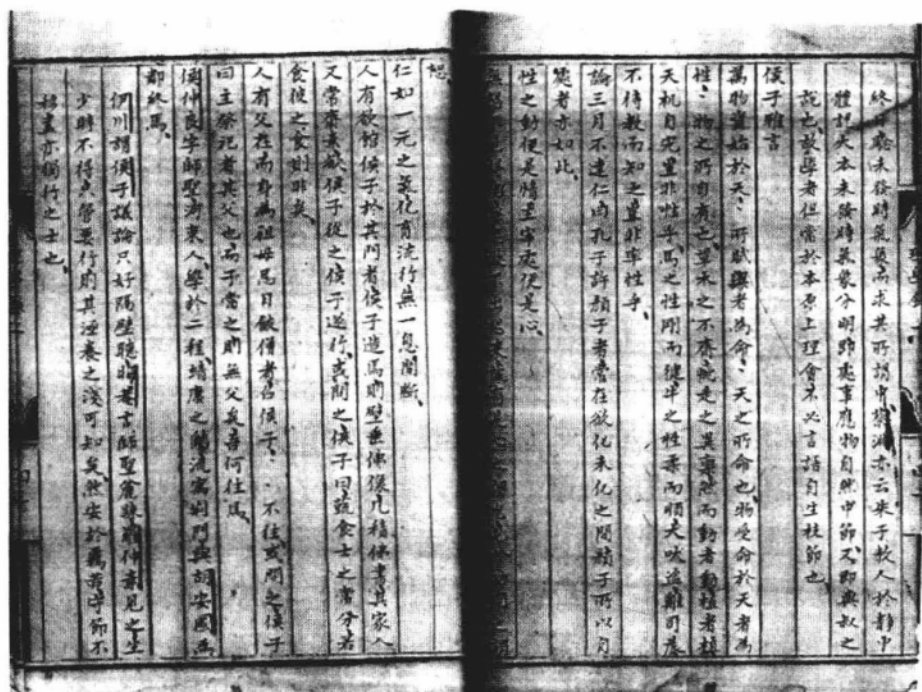 終日驗未發時氣象而求其所謂中黎洲亦云朱子教人於靜中
體認大本未發時氣象分明即處事應物自然中節又即與叔之
說也故學者但當於本原上理會不必言語自生枝節也
侯子雅言
萬物資始於天天所賦與者為命命天之所命也物受命於天者為
性性物之所自有也草木之不齊飛走之異稟然而動者動植者植
天机自完豈非性乎馬之性剛而健牛之性柔而順犬吠盜雞司晨
不待教而知之豈非率性乎
論三月不違仁曰孔子許顏子者常在欲化未化之間顏子所以自
處者亦如此
性之動便是情主宰處便是心
恕
仁如一元之氣化育流行無一息間斷
人有欲館侯子於其門者侯子造焉則壁垂佛像几積佛書其家人
又常齋素欲侯子從之侯子遂行或問之侯子曰蔬食士之常分若
食彼之食則非矣
人有父在而身為祖母忌日飯僧者召侯子侯子不往或問之侯子
曰主祭祀者其父也而子當之則無父矣吾何往焉
侯仲良字師聖河東人學於二程靖康之亂流寓荊門與胡安國為
鄰終焉
伊川謂侯子議論只好隔壁聽晦菴言師聖麄疎羅仲素見之坐
少時不得只管要行則其涵養之淺可知矣然安於羈苦守節不
移蓋亦獨行之士也